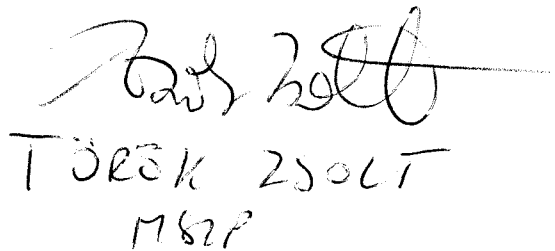 Török Zsolt
TÖRÖK ZSOLT
MSZP